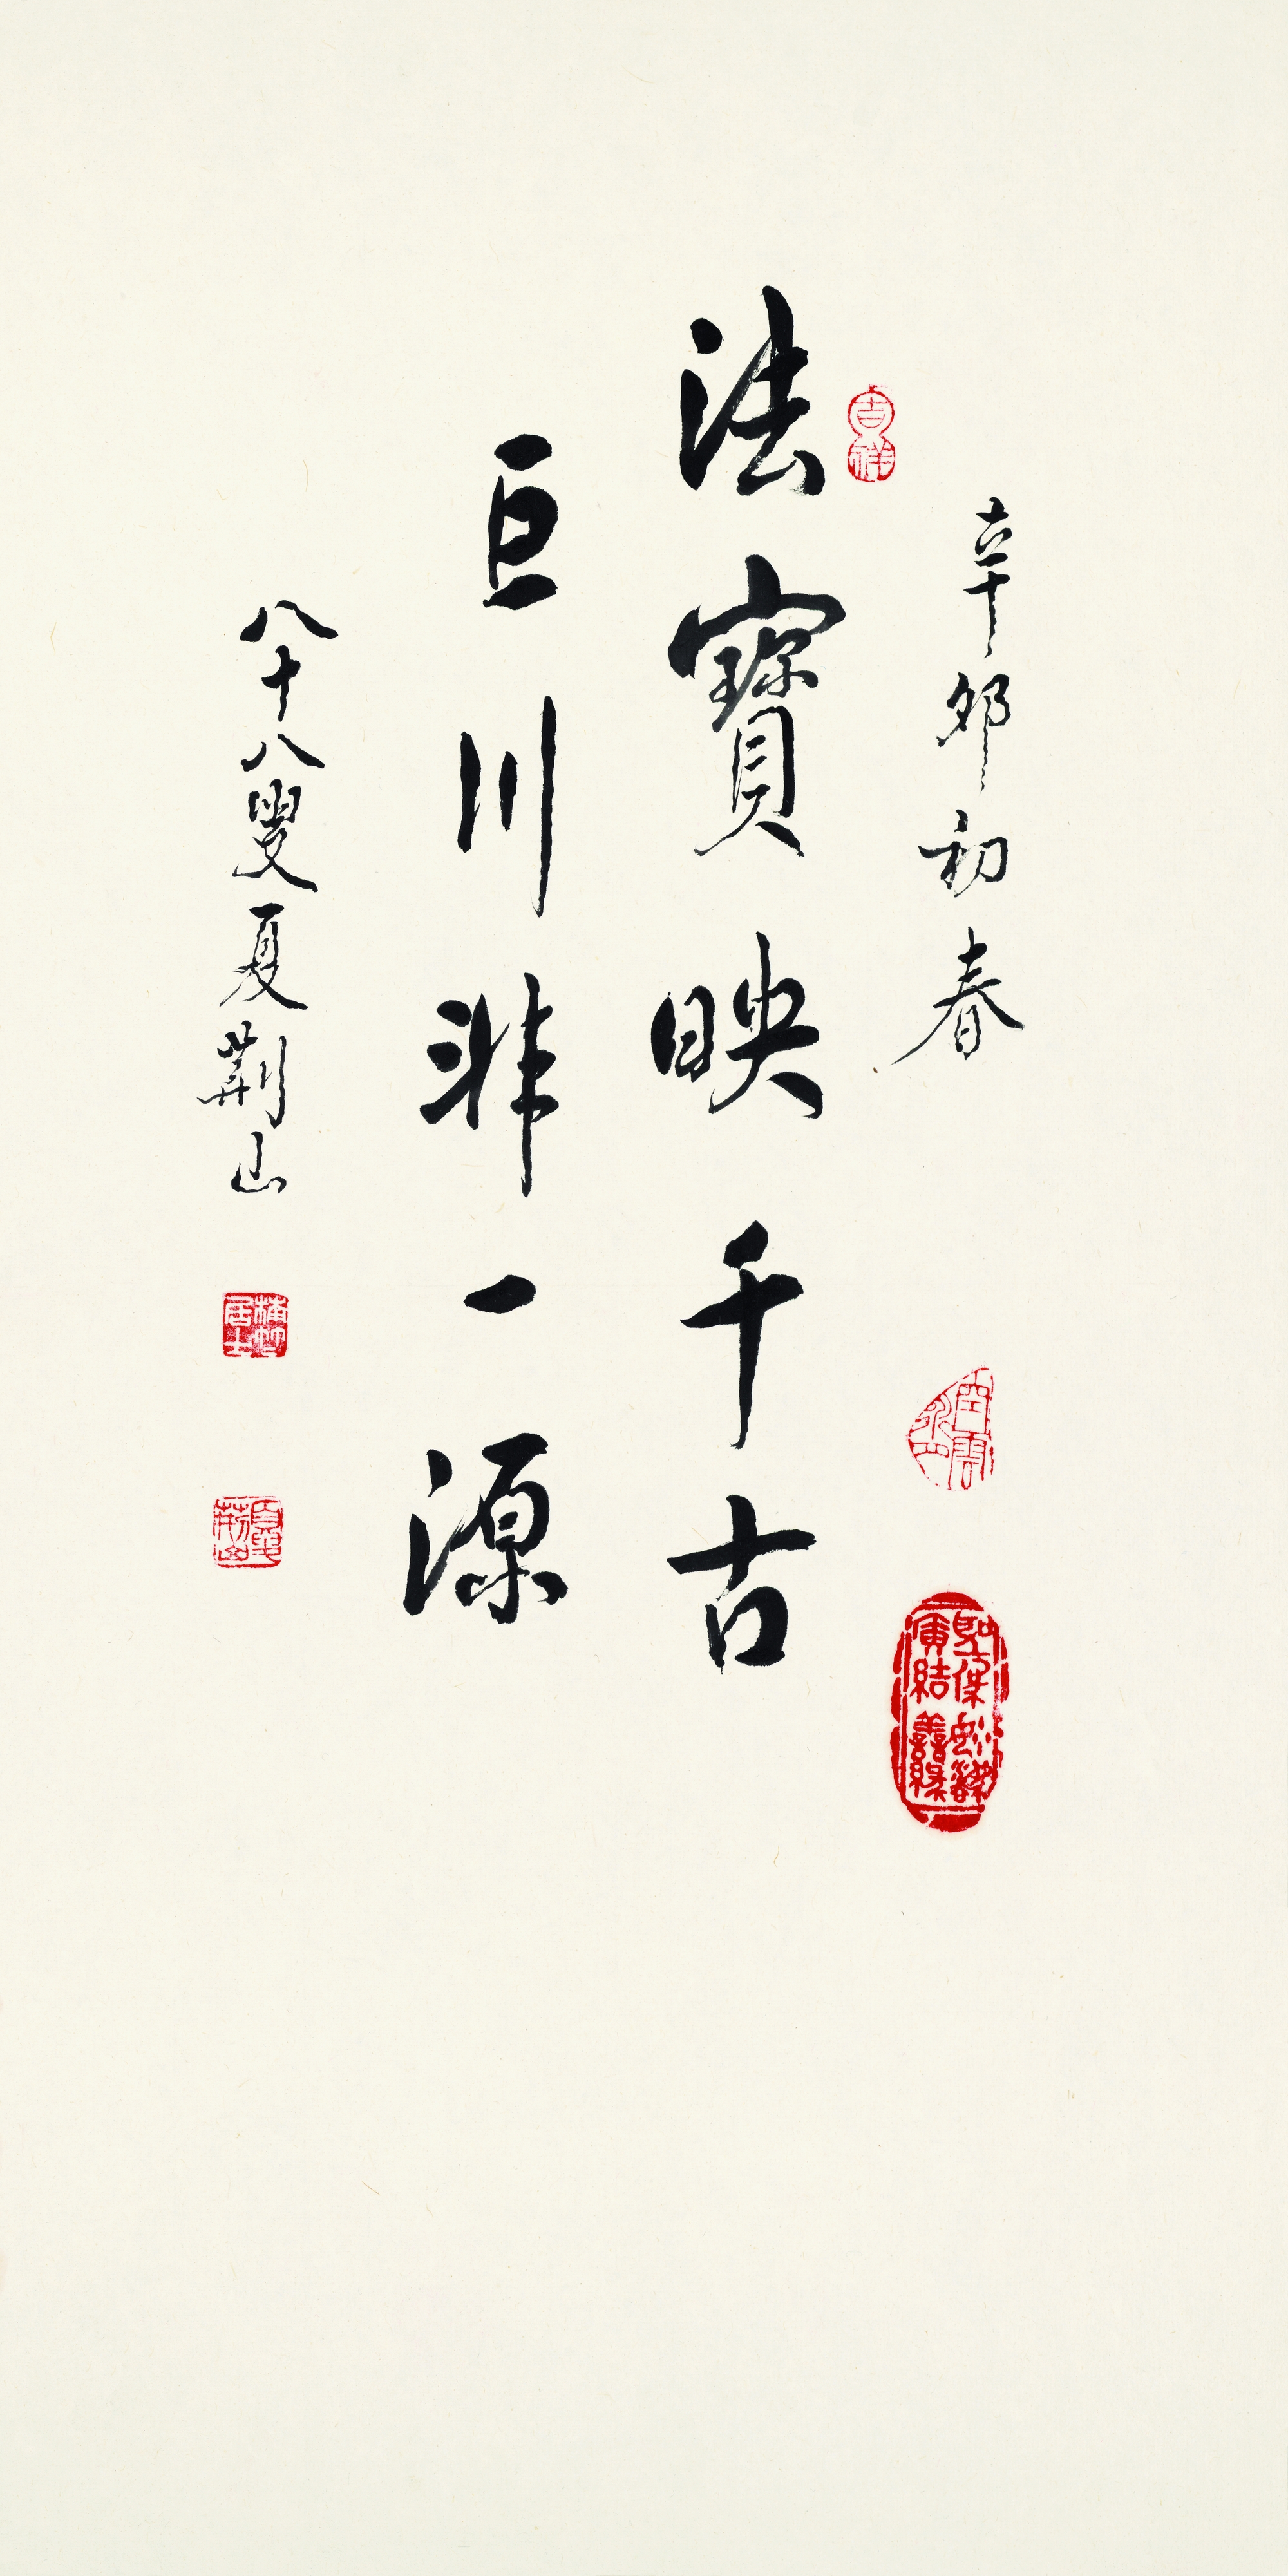 辛卯初春
法寶映千古
巨川非一源
八十八叟夏荊山
吉祥
楠竹居士
夏荊山